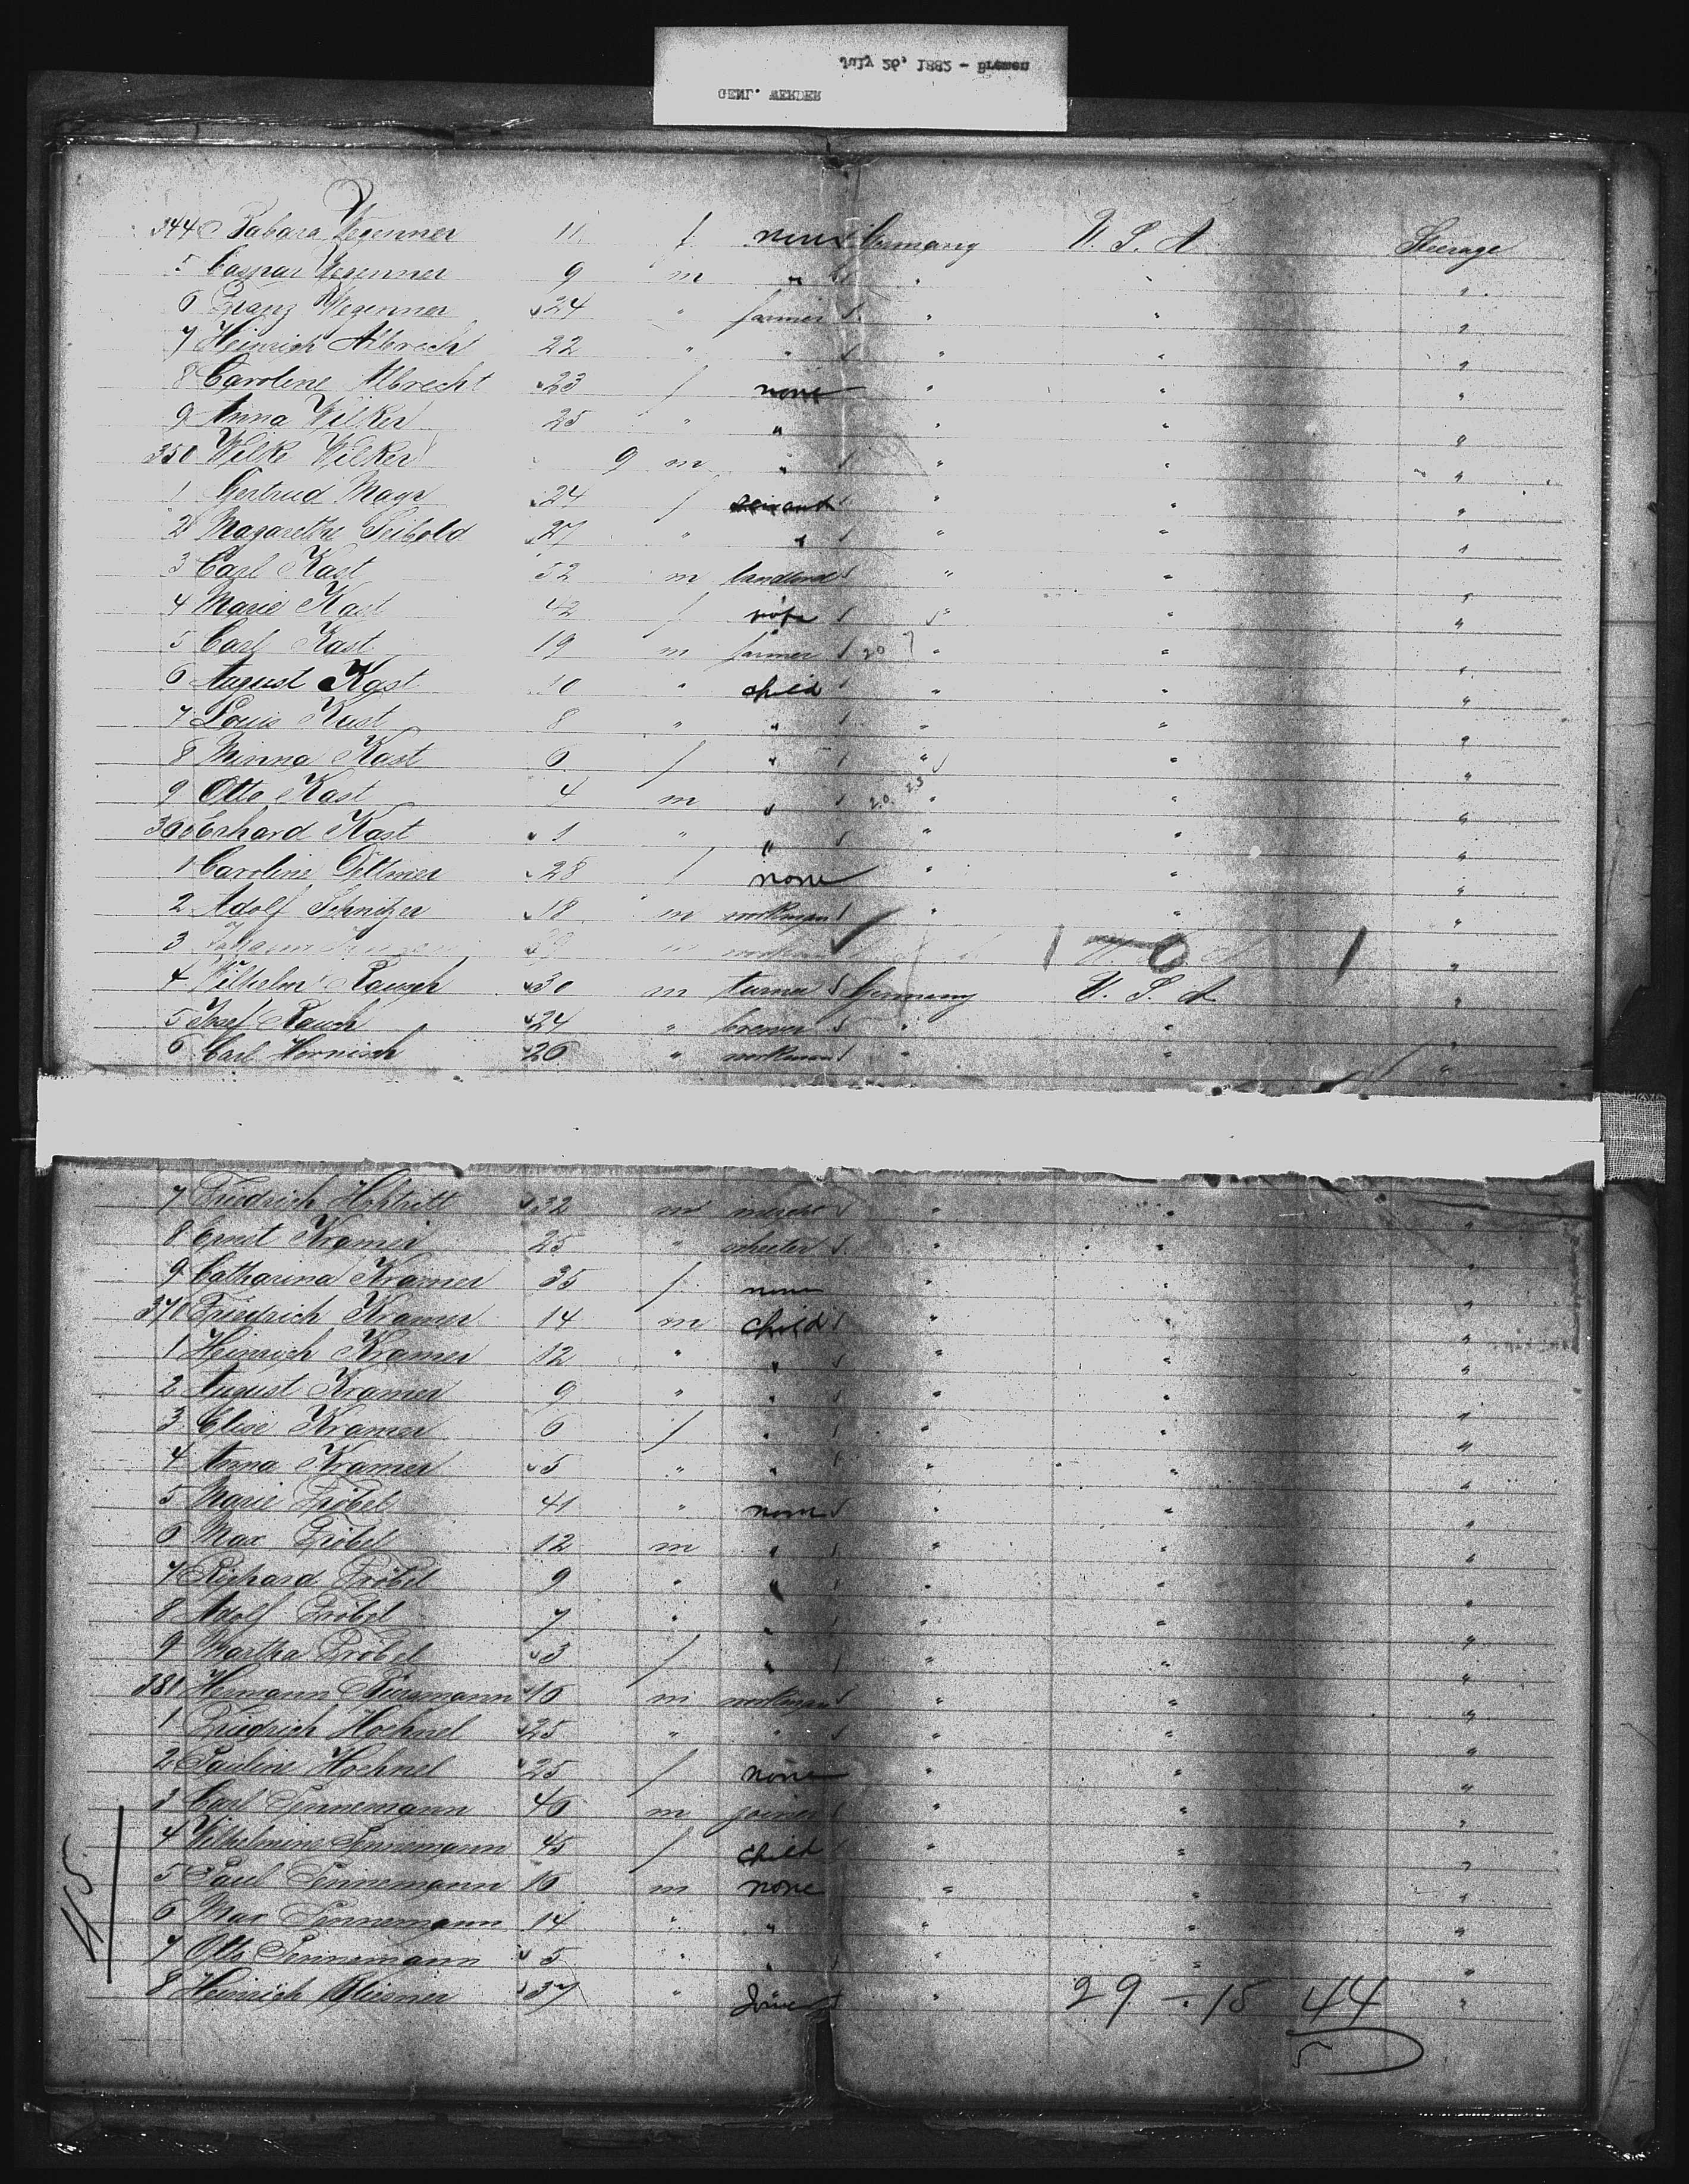 July 26, 1882 - Bremen
GENL. WERDER
344 Babara Wegenner 11 f none Germany U. S. A. Steerage
5 Caspar Wegenner 9 m " " " "
6 Franz Wegenner 24 " farmer " " "
7 Heinrich Albrecht 22 " " " " "
8 Caroline Albrecht 23 f none " " "
9 Anna Wilker 25 " " " " "
350 Wilke Wilker 9 m " " " "
1 Gertrud Mayr 24 f servant " " "
2 Magarethe Seibold 27 " " " " "
3 Carl Kast 52 m landlord " " "
4 Marie Kast 42 f wife " " "
5 Carl Kast 19 m farmer 20 " " "
6 August Kast 10 " child " " "
7 Louis Kast 8 " " " " "
8 Minna Kast 6 f " " " "
9 Otto Kast 4 m " 20 23 " " "
360 Erhard Kast 1 " " " " "
1 Caroline Dittmer 28 f none " " "
2 Adolf Schnitzer 18 m workman " " "
3 workman "
4 Wilhelm Rausch 30 m turner Germany U. S. A. "
5 Josef Rausch 24 " brewer " " "
6 Carl Hornisch 26 " workman " " "
7 Friedrich 32 m mercht " " "
8 Ernst Kramer 25 " " " "
9 Catharina Kramer 35 f none " " "
370 Friedrich Kramer 14 m child " " "
1 Heinrich Kramer 12 " " " " "
2 August Kramer 9 " " " " "
3 Elise Kramer 6 f " " " "
4 Anna Kramer 5 " " " " "
5 Marie Fröbel 41 " none " " "
6 Max Fröbel 12 m " " " "
7 Richard Fröbel 9 " " " " "
8 Adolf Fröbel 7 " " " " "
9 Martha Fröbel 3 f " " " "
381 Hermann 16 m workman " " "
1 Friedrich Hoehnel 25 " " " " "
2 Pauline Hoehnel 25 f none " " "
3 Carl Sennemann 46 m joiner " " "
4 Wilhelmine Sennemann 45 f child " " "
5 Paul Sennemann 16 m none " " "
6 Max Sennemann 14 " " " " "
7 Otto Sennemann 5 " " " "
8 Heinrich Kliesner 37 " " "
45
29 - 15 44
5